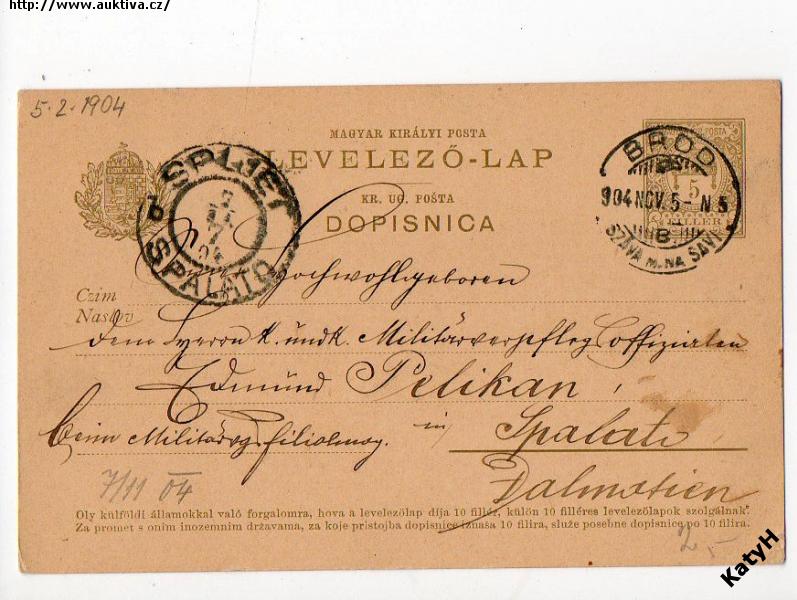 http://www.auktiva.cz/
5·2·1904
MAGYAR KIRÁLYI POSTA
LEVELEZŐ-LAP
KR. UG. POŠTA
DOPISNICA
SPLJET
b
SPALATO
POSTA
5
FILLER
BROD
904 NOV. 5 - N 5
B
SZÁVA M. NA SAVI
Hochwohlgeboren
Czim
Naslov
dem Herrn k. und k. Militärverpflegsoffizialen
Edmund Pelikan,
beim Militärvgs filialmag. in Spalato
Dalmatien
7/11 04
Oly külföldi államokkal való forgalomra, hova a levelezőlap díja 10 fillér, külön 10 filléres levelezőlapok szolgálnak.
Za promet s onim inozemnim državama, za koje pristojba dopisnice iznaša 10 filira, služe posebne dopisnice po 10 filira.
2,-
KatyH